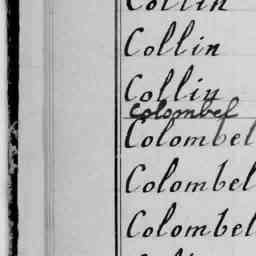 Collin
Collin
Collin
Colombel
Colombel
Colombel
Colombel